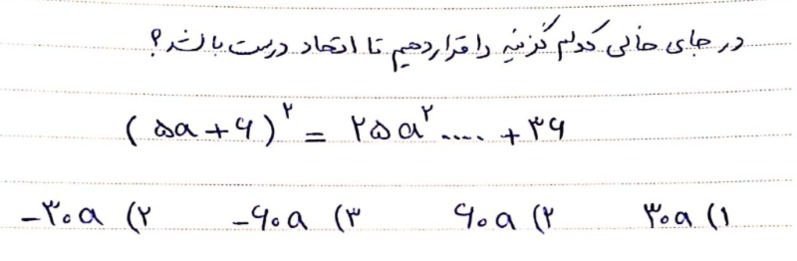 در جای خالی کدام گزینه را قرار دهیم تا اتحاد درست باشد؟
(۵a + ۶)^۲ = ۲۵a^۲ .... + ۳۶
۱) ۳۰a ۲) ۶۰a ۳) -۶۰a ۲) -۳۰a